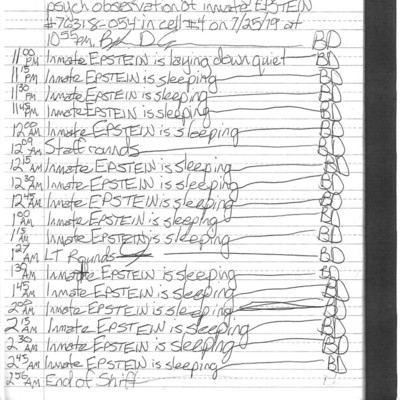 psych observation of inmate EPSTEIN
#76318-054 in cell #4 on 7/25/19 at
10:55 PM. BD
11:00 PM Inmate EPSTEIN is laying down quiet BD
11:15 PM Inmate EPSTEIN is sleeping BD
11:30 PM Inmate EPSTEIN is sleeping BD
11:45 PM Inmate EPSTEIN is sleeping BD
12:00 AM Inmate EPSTEIN is sleeping BD
12:09 AM Staff rounds BD
12:15 AM Inmate EPSTEIN is sleeping BD
12:30 AM Inmate EPSTEIN is sleeping BD
12:45 AM Inmate EPSTEIN is sleeping BD
1:00 AM Inmate EPSTEIN is sleeping BD
1:15 AM Inmate EPSTEIN is sleeping BD
1:27 AM LT Rounds BD
1:30 AM Inmate EPSTEIN is sleeping BD
1:45 AM Inmate EPSTEIN is sleeping BD
2:00 AM Inmate EPSTEIN is sleeping BD
2:15 AM Inmate EPSTEIN is sleeping BD
2:30 AM Inmate EPSTEIN is sleeping BD
2:45 AM Inmate EPSTEIN is sleeping BD
2:56 AM End of Shift